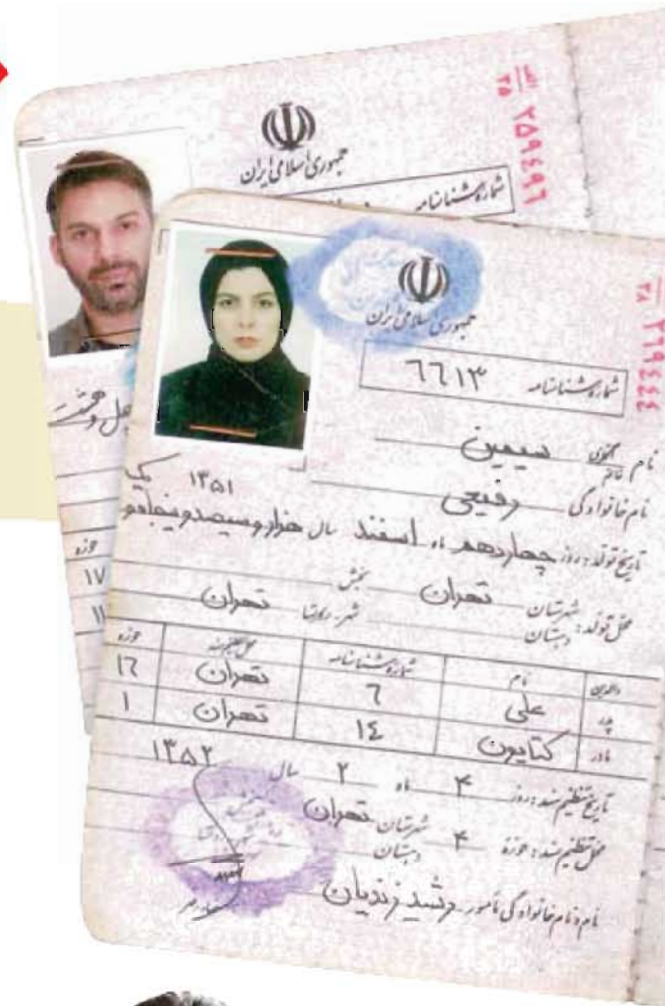 جمهوری اسلامی ایران
شماره شناسنامه
۳۵ ۲۵۹۴۹۶
هل و هشت
حوزه
۱۷
جمهوری اسلامی ایران
شماره شناسنامه ۶۶۱۳
نام سیمین
نام خانوادگی رفیعی
۱۳۵۱
تاریخ تولد: روز چهاردهم ماه اسفند سال هزار و سیصد و پنجاه و یک
محل تولد: شهرستان تهران بخش
دهستان شهر-روستا تهران
والدین نام شماره شناسنامه محل تنظیم سند حوزه
پدر علی ۶ تهران ۱۶
مادر کتایون ۱۴ تهران ۱
تاریخ تنظیم سند: روز ۴ ماه ۲ سال ۱۳۵۲
محل تنظیم سند: حوزه ۴ شهرستان تهران
دهستان
نام و نام خانوادگی مأمور فرشید زندیان